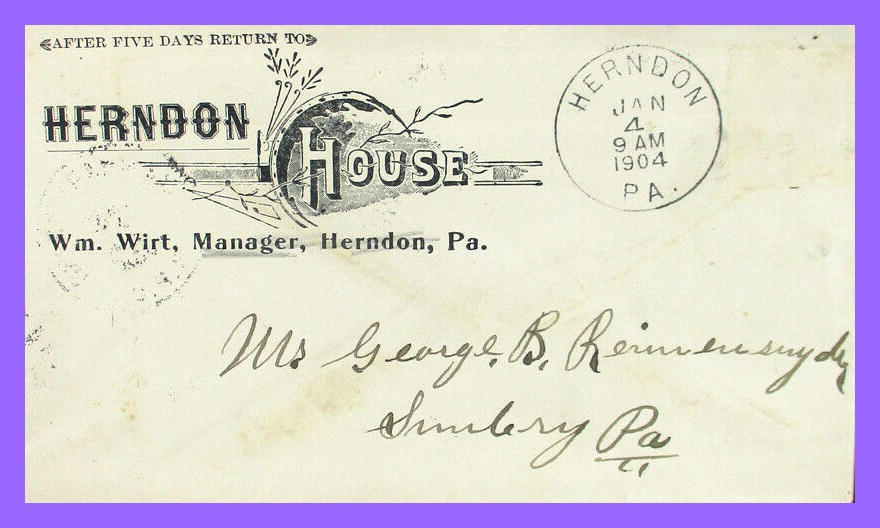 AFTER FIVE DAYS RETURN TO
HERNDON
HOUSE
Wm. Wirt, Manager, Herndon, Pa.
HERNDON
JAN
4
9 AM
1904
PA.
Mr George. B. Reimensnyder
Sunbery Pa